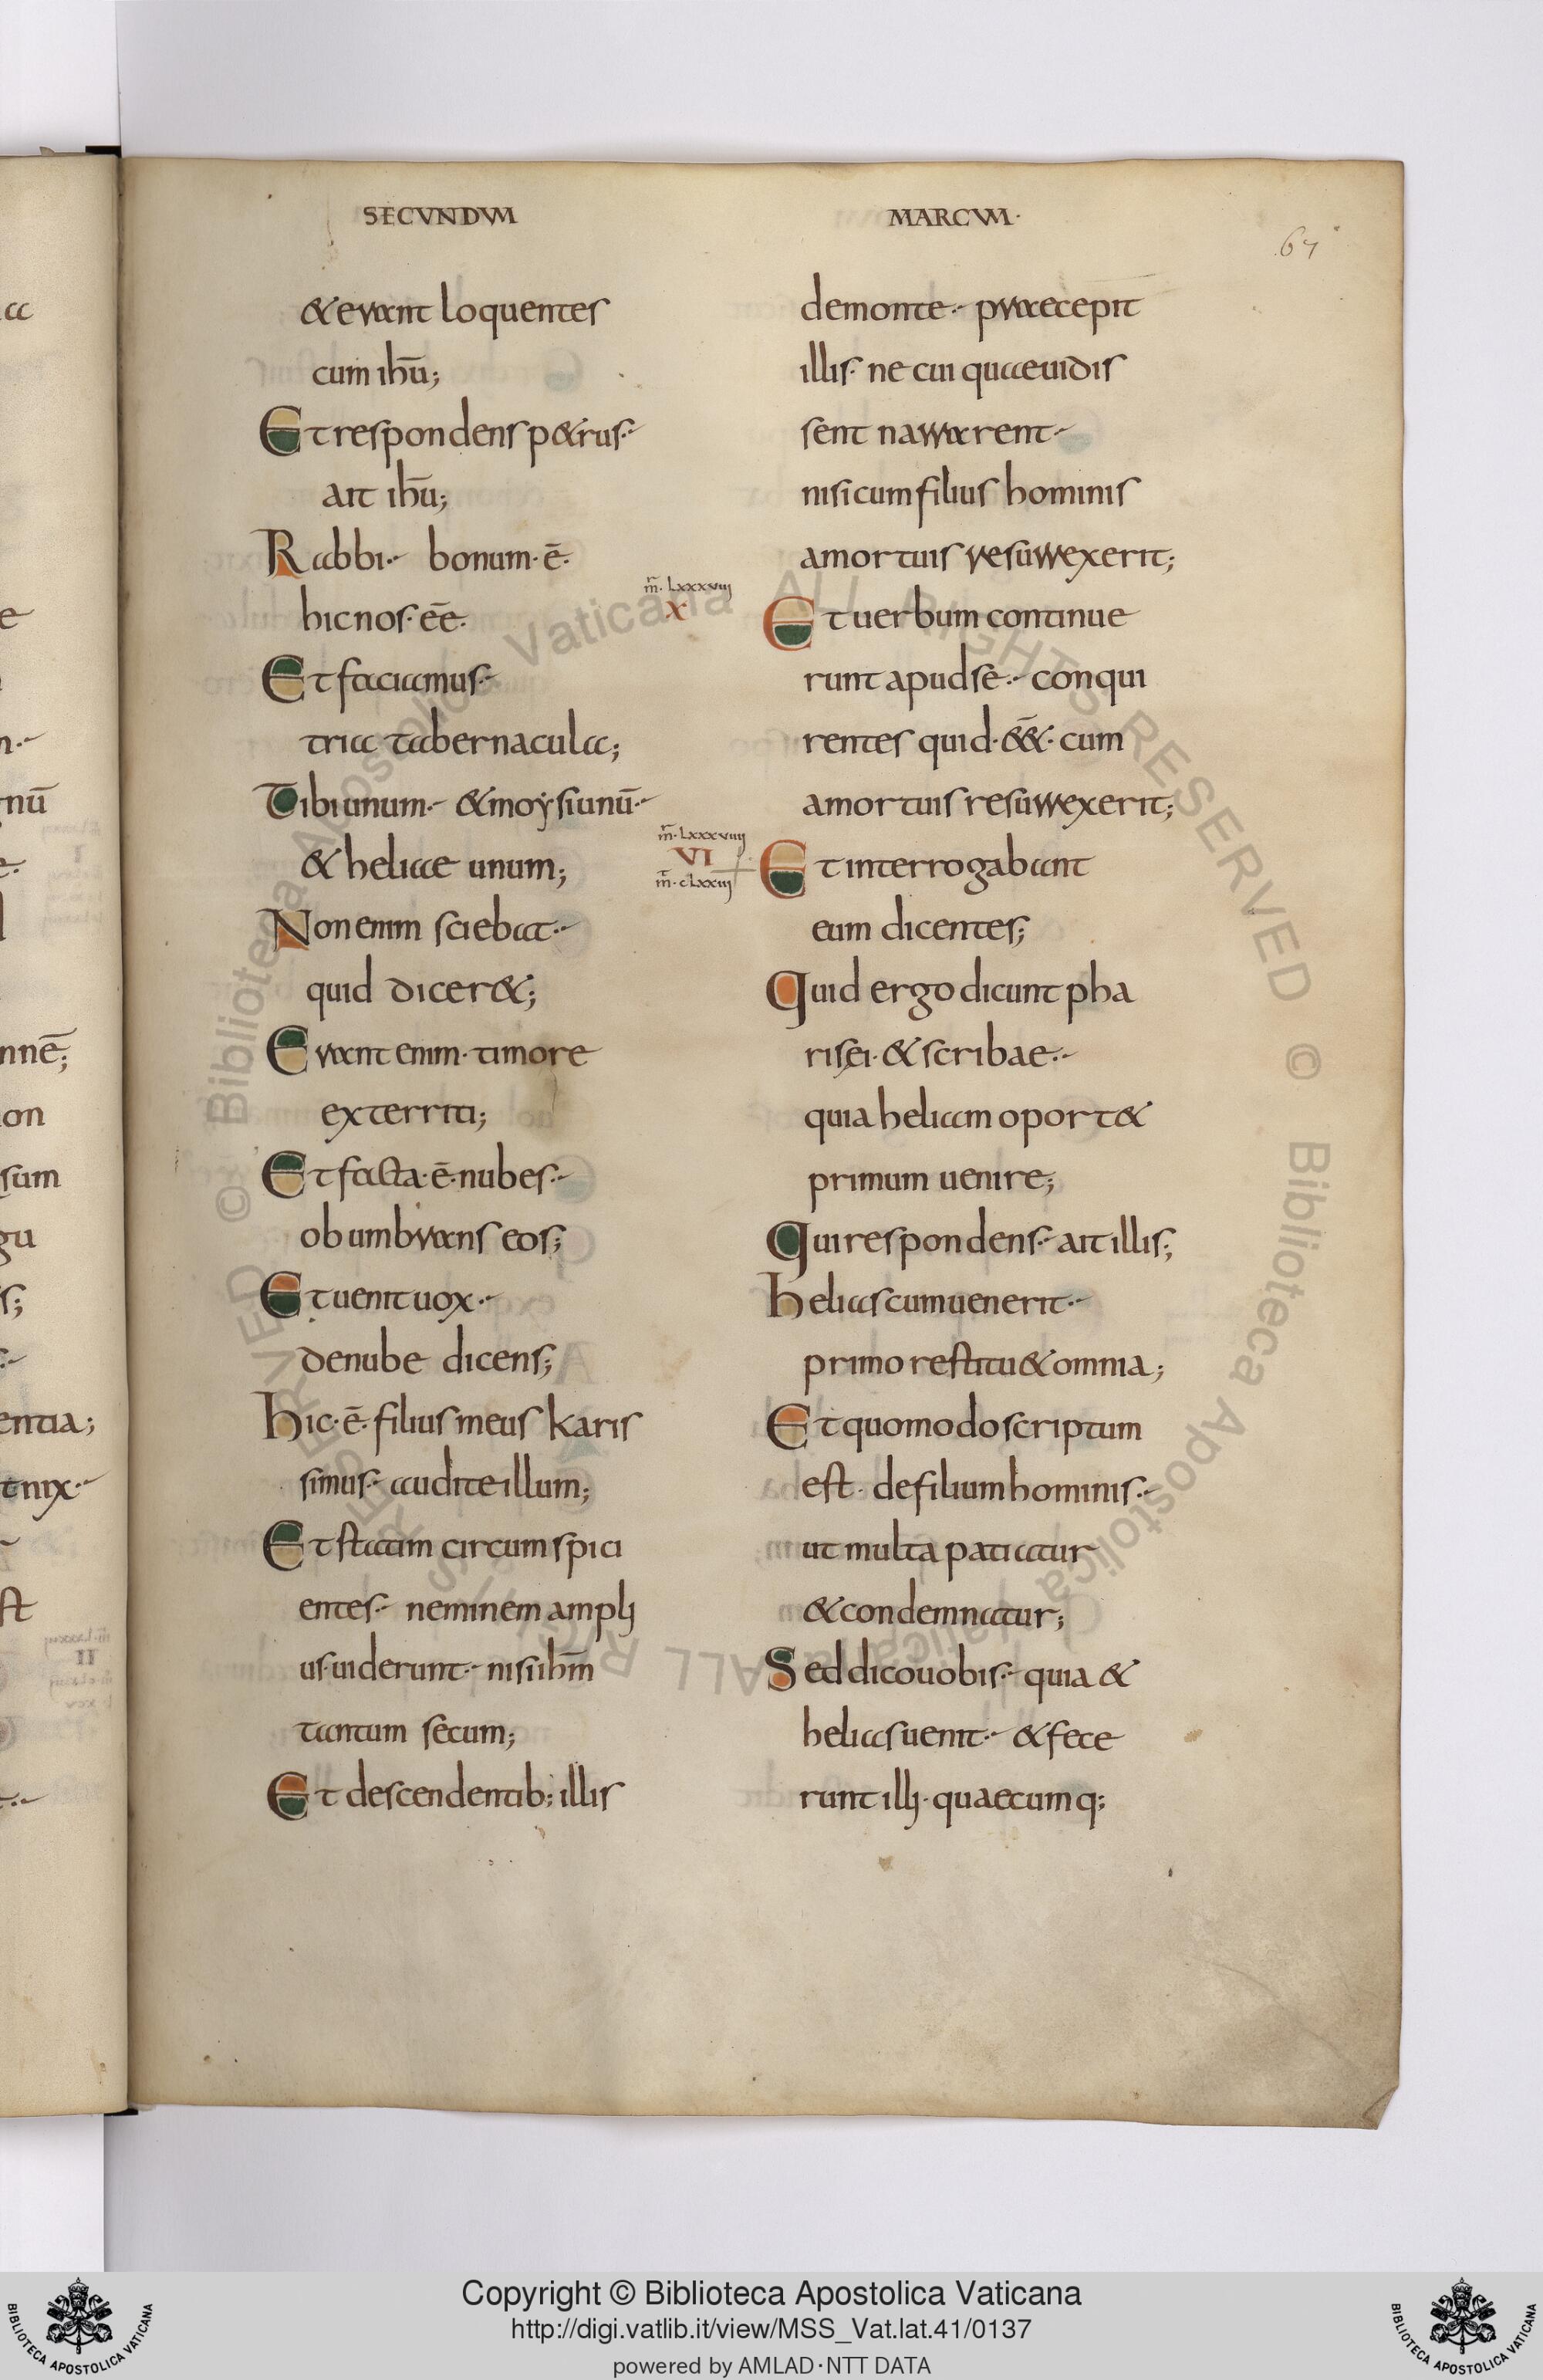 SECVNDVM
& erant loquentes
cum ihū;
Et respondens p&rus·
ait ihū;
Rabbi· bonum·ē·
hic nos·ēē·
Et faciamus·
tria tabernacula;
Tibi unum· & moysi unū·
& heliae unum;
Non enim sciebat·
quid dicer&;
Erant enim· timore
exterriti;
Et facta·ē·nubes·
obumbrans eos;
Et uenit uox·
de nube dicens;
hic·ē·filius meus karis
simus· audite illum;
Et statim circumspici
entes· neminem ampli
us·uiderunt· nisi ihm̄
tantum secum;
Et descendentib; illis
MARCVM·
67
de monte· praecepit
illis· ne cui quae uidis
sent narrarent·
nisi cum filius hominis
a mortuis resurrexerit;
m̄· Lxxxviii
X
Et uerbum continue
runt apud se· conqui
rentes quid·ēē&·cum
a mortuis resurrexerit;
m̄·Lxxxviiii
VI
m̄·cLxxiii
Et interrogabant
eum dicentes;
Quid ergo dicunt pha
risei·& scribae·
quia heliam oport&
primum uenire;
Qui respondens· ait illis;
helias cum uenerit·
primo restitu& omnia;
Et quomodo scriptum
est· de filium hominis·
ut multa patiatur
& condemnatur;
Sed dico uobis· quia &
helias uenit· & fece
runt illi·quaecumq;
Copyright © Biblioteca Apostolica Vaticana
http://digi.vatlib.it/view/MSS_Vat.lat.41/0137
powered by AMLAD·NTT DATA
BIBLIOTECA APOSTOLICA VATICANA
BIBLIOTECA APOSTOLICA VATICANA